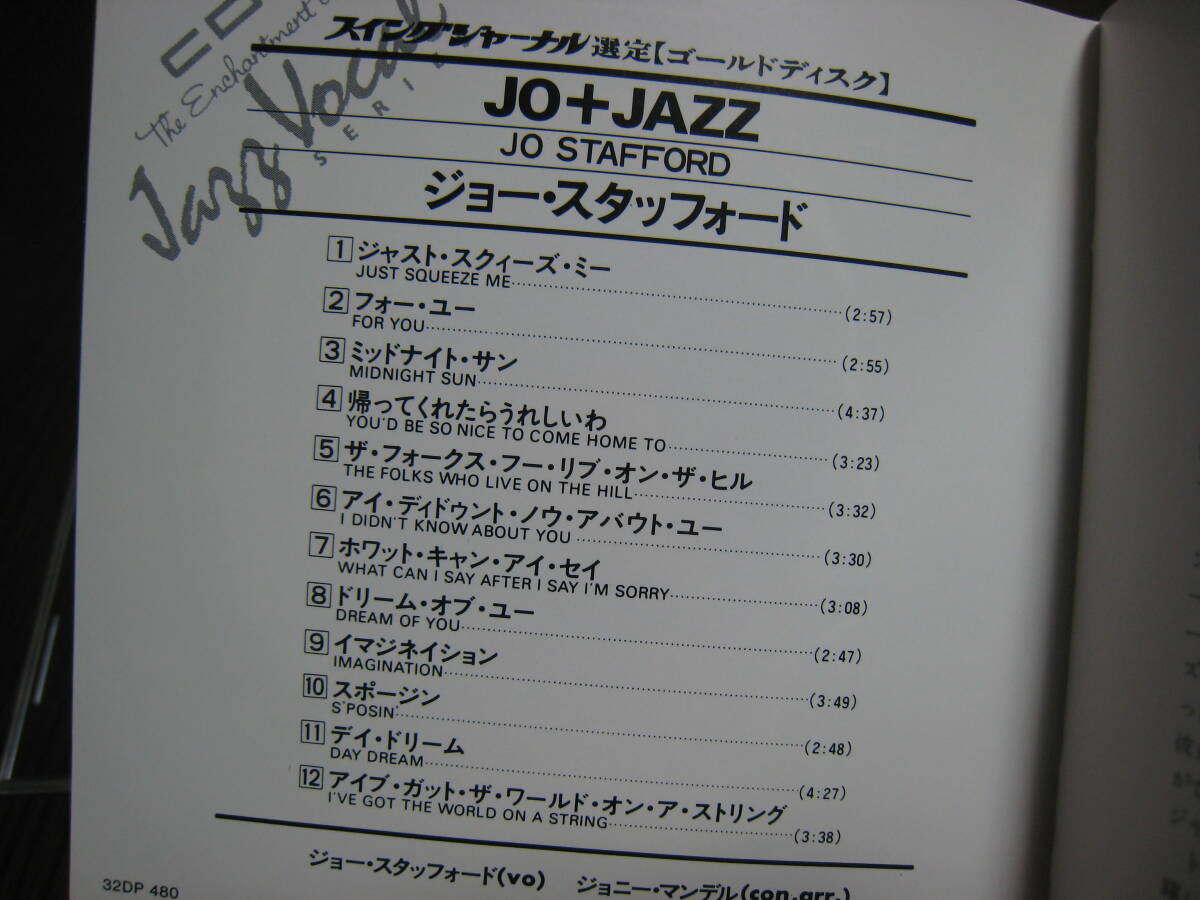 CD
The Enchantment
Jazz Vocal
SERIE
スイングジャーナル選定【ゴールドディスク】
JO+JAZZ
JO STAFFORD
ジョー・スタッフォード
1 ジャスト・スクィーズ・ミー
JUST SQUEEZE ME (2:57)
2 フォー・ユー
FOR YOU (2:55)
3 ミッドナイト・サン
MIDNIGHT SUN (4:37)
4 帰ってくれたらうれしいわ
YOU'D BE SO NICE TO COME HOME TO (3:23)
5 ザ・フォークス・フー・リブ・オン・ザ・ヒル
THE FOLKS WHO LIVE ON THE HILL (3:32)
6 アイ・ディドゥント・ノウ・アバウト・ユー
I DIDN'T KNOW ABOUT YOU (3:30)
7 ホワット・キャン・アイ・セイ
WHAT CAN I SAY AFTER I SAY I'M SORRY (3:08)
8 ドリーム・オブ・ユー
DREAM OF YOU (2:47)
9 イマジネイション
IMAGINATION (3:49)
10 スポージン
S'POSIN' (2:48)
11 デイ・ドリーム
DAY DREAM (4:27)
12 アイブ・ガット・ザ・ワールド・オン・ア・ストリング
I'VE GOT THE WORLD ON A STRING (3:38)
ジョー・スタッフォード(vo) ジョニー・マンデル(con, arr.)
32DP 480